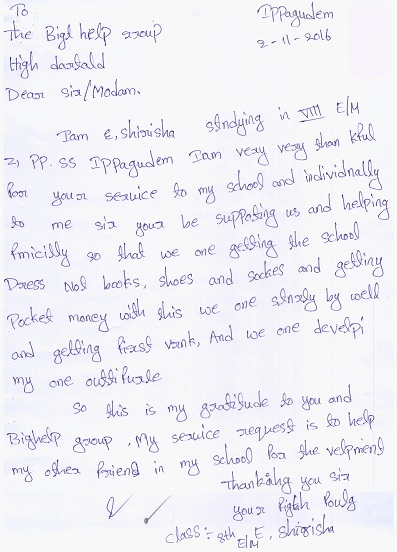 To
Ippagudem
The Bigl help group
2-11-2016
High dartald
Dear sir/Modam.
Iam E, shirisha stndying in VIII E/M
Z, PP. SS Ippagudem Iam very very than kful
for your service to my school and individnally
to me sir your be suppoting us and helping
fmicilly so that we one getting the school
Dress Not books, shoes and sockes and getting
Pocket money with this we one stnrly by well
and getting first rank, And we one develpi
my one outtifurle
So this is my gratitude to you and
Bighelp group. My service request is to help
my other friend in my school for the velpment
Thankahg you sir
your Pigtah Poulg
class:- 8th E/M E, shirisha